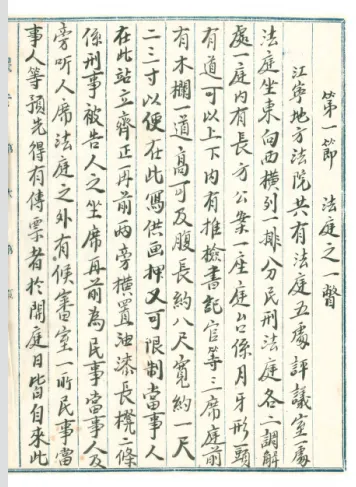 第一節 法庭之一瞥
江寧地方法院共有法庭五處評議室一處
法庭坐東向西橫列一排分民刑法庭各二調解
處一庭內有長方公案一座庭台係月牙形頭
有道可以上下內有推檢書記官等三席庭前
有木欄一道高可及腹長約八尺寬約一尺
二三寸以便在此寫供画押又可限制當事人
在此站立齊正再前兩旁橫置油漆長櫈二條
係刑事被告人之坐席再前為民事當事人及
旁听人席法庭之外有候審室一所民事當
事人等預先得有傳票者於開庭日皆自來此